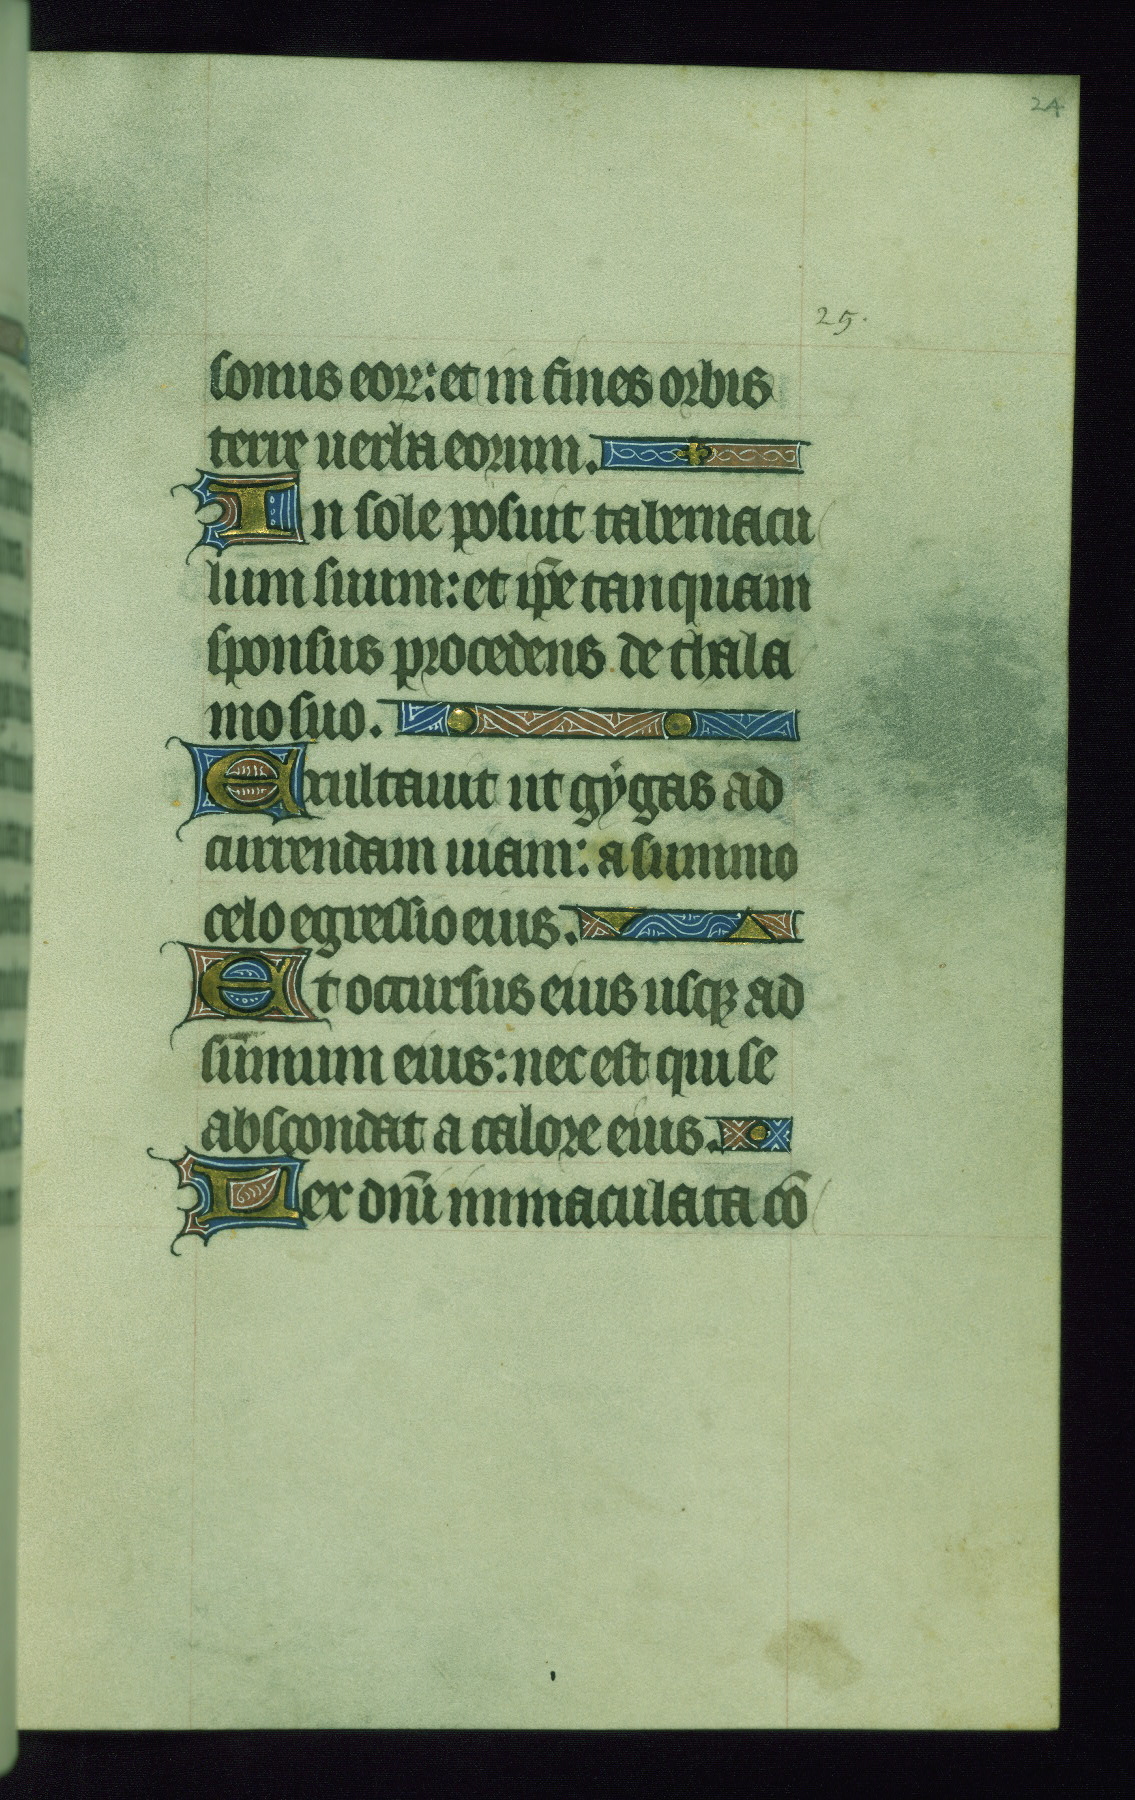 24
25.
sonus eoꝝ: et in fines orbis
terre uerba eorum.
In sole posuit tabernacu
lum suum: et ip̄e tanquam
sponsus procedens de thala
mo suo.
Exultauit ut gẏgas ad
currendam uiam: a summo
celo egressio eius.
Et occursus eius usqꝫ ad
sum̄mum eius: nec est qui se
abscondat a calore eius.
Lex dn̄i immaculata cō